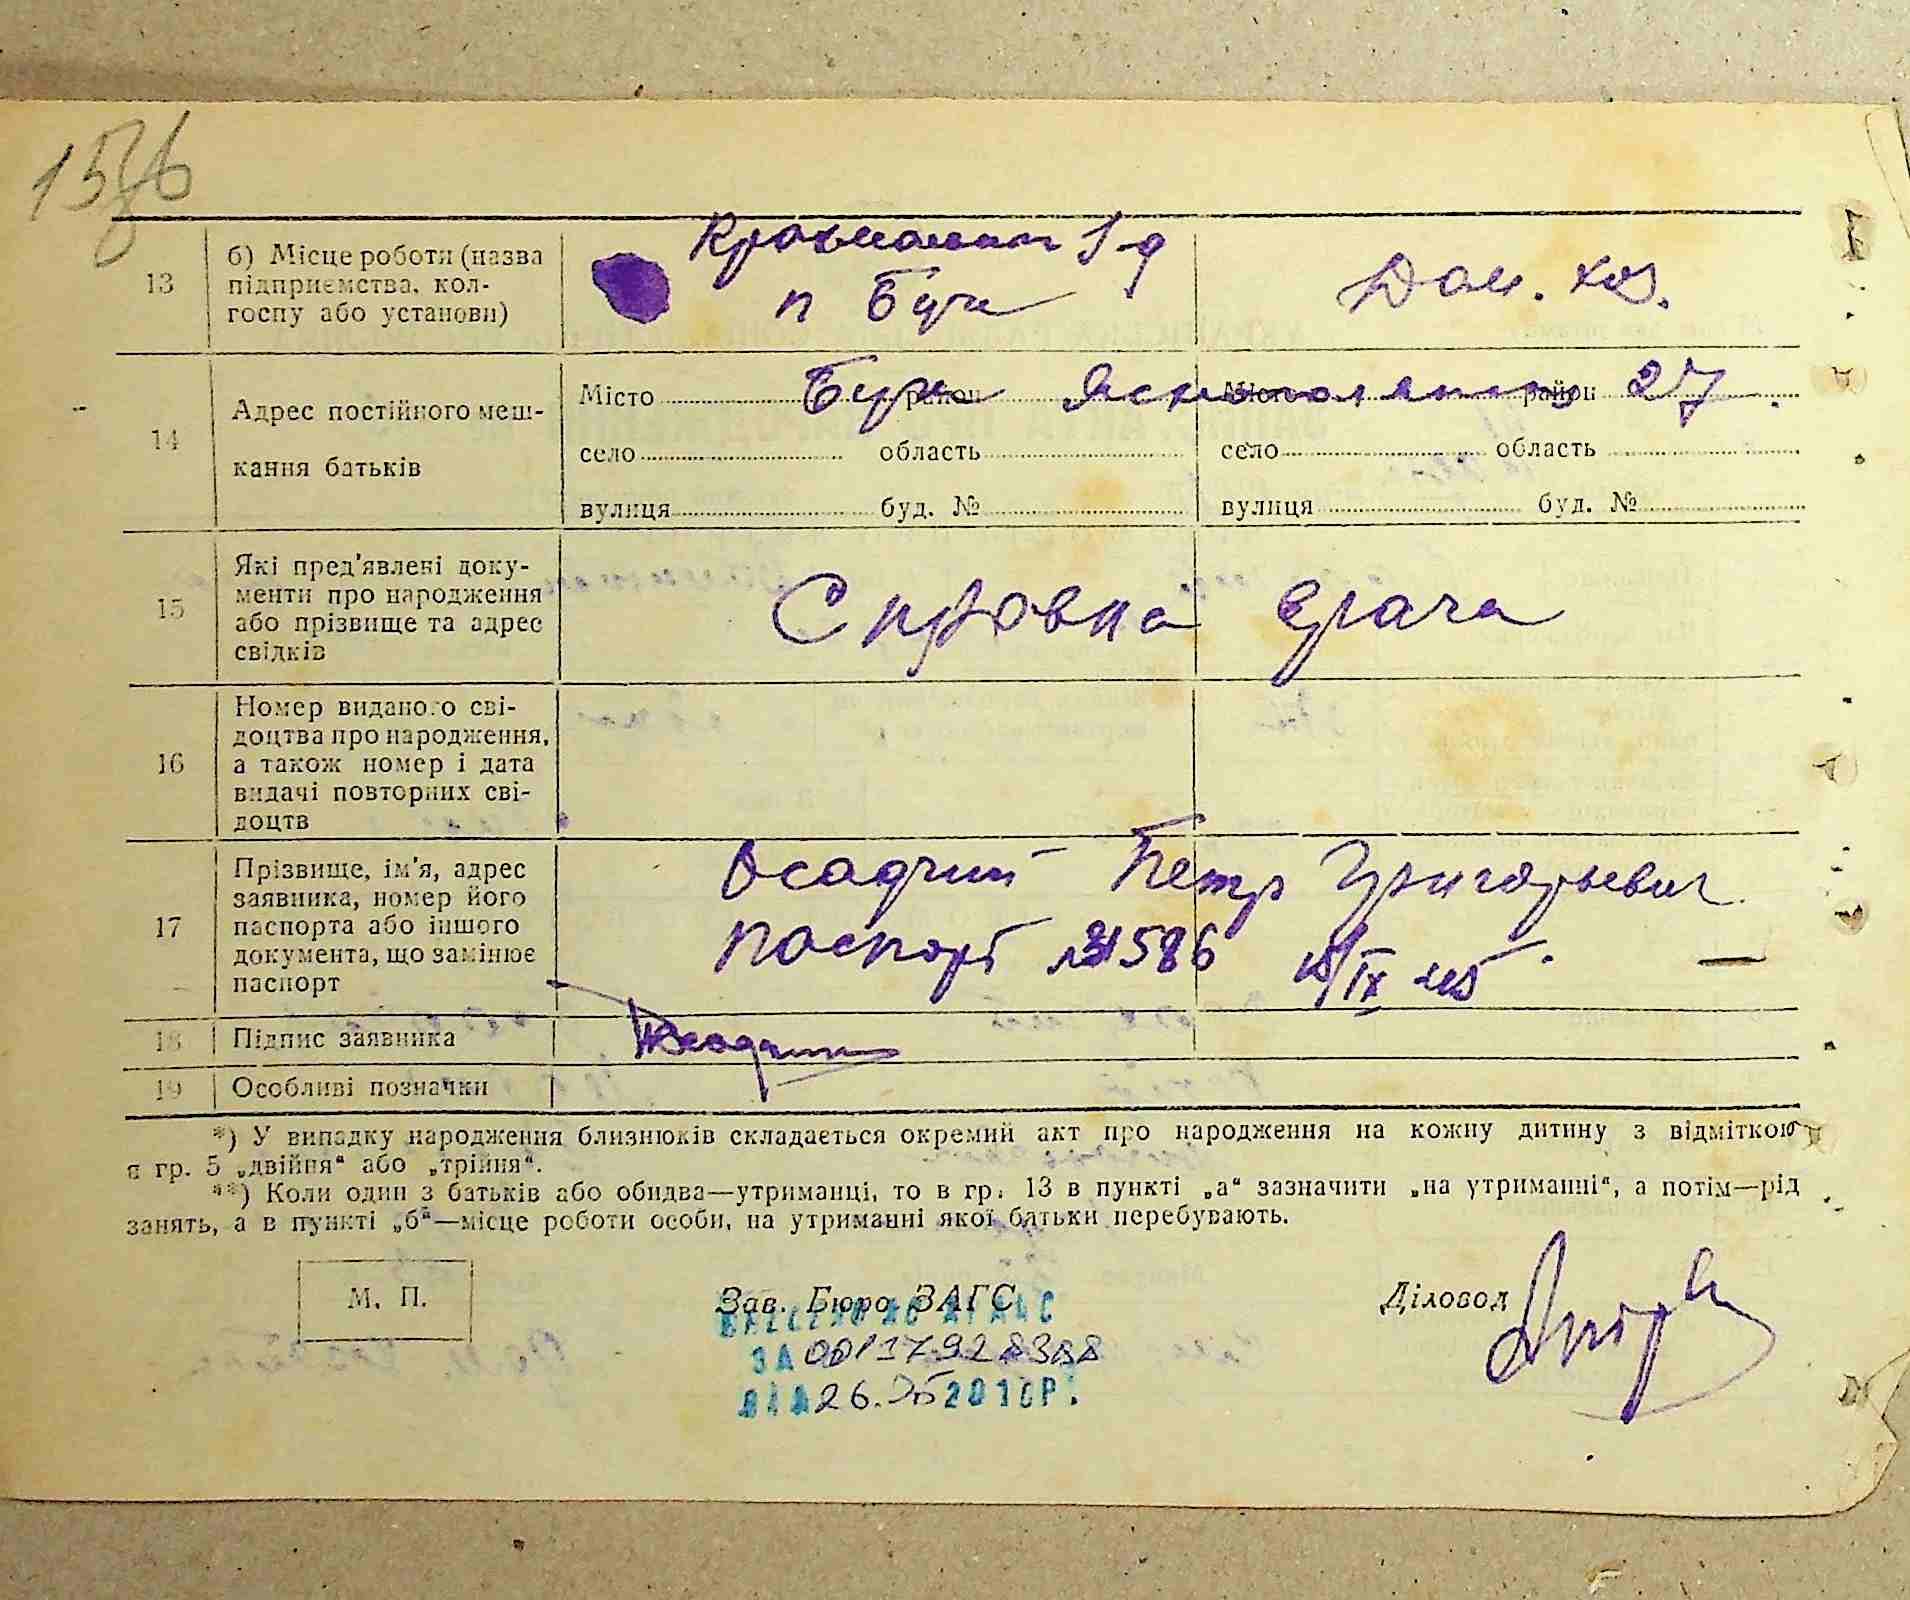 13
б) Місце роботи (назва
підприємства, кол-
госпу або установи)
п Буча
Дом. хоз.
14
Адрес постійного меш-
кання батьків
Місто Буча район Місто район 27
село область село область
вулиця буд. № вулиця буд. №
15
Які пред'явлені доку-
менти про народження
або прізвище та адрес
свідків
Справка врача
16
Номер виданого сві-
доцтва про народження,
а також номер і дата
видачі повторних сві-
доцтв
17
Прізвище, ім'я, адрес
заявника, номер його
паспорта або іншого
документа, що замінює
паспорт
Осадчий Петр Григорьевич
паспорт
18
Підпис заявника
Осадчий
19
Особливі позначки
*) У випадку народження близнюків складається окремий акт про народження на кожну дитину з відміткою
в гр. 5 „двійня“ або „трійня“.
**) Коли один з батьків або обидва—утриманці, то в гр. 13 в пункті „а“ зазначити „на утриманні“, а потім—рід
занять, а в пункті „б“—місце роботи особи, на утриманні якої батьки перебувають.
М. П.
Зав. Бюро ЗАГС
Діловод
ВНЕСЕНО ДО ДРАЦС
ЗА
2010Р.